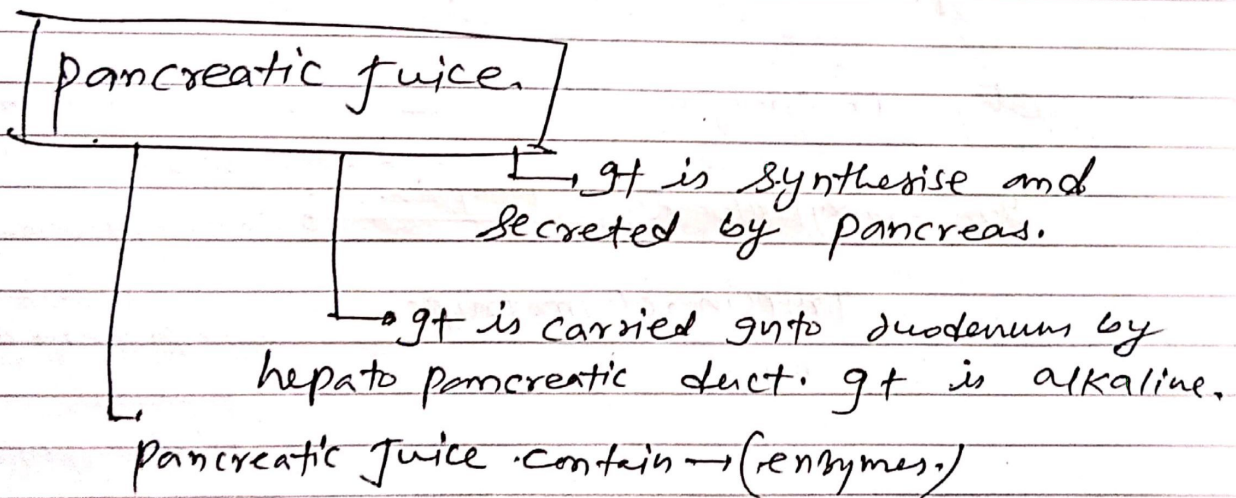 pancreatic Juice.
It is synthesise and
secreted by pancreas.
It is carried into duodenum by
hepato pancreatic duct. It is alkaline.
pancreatic Juice contain → (enzymes.)